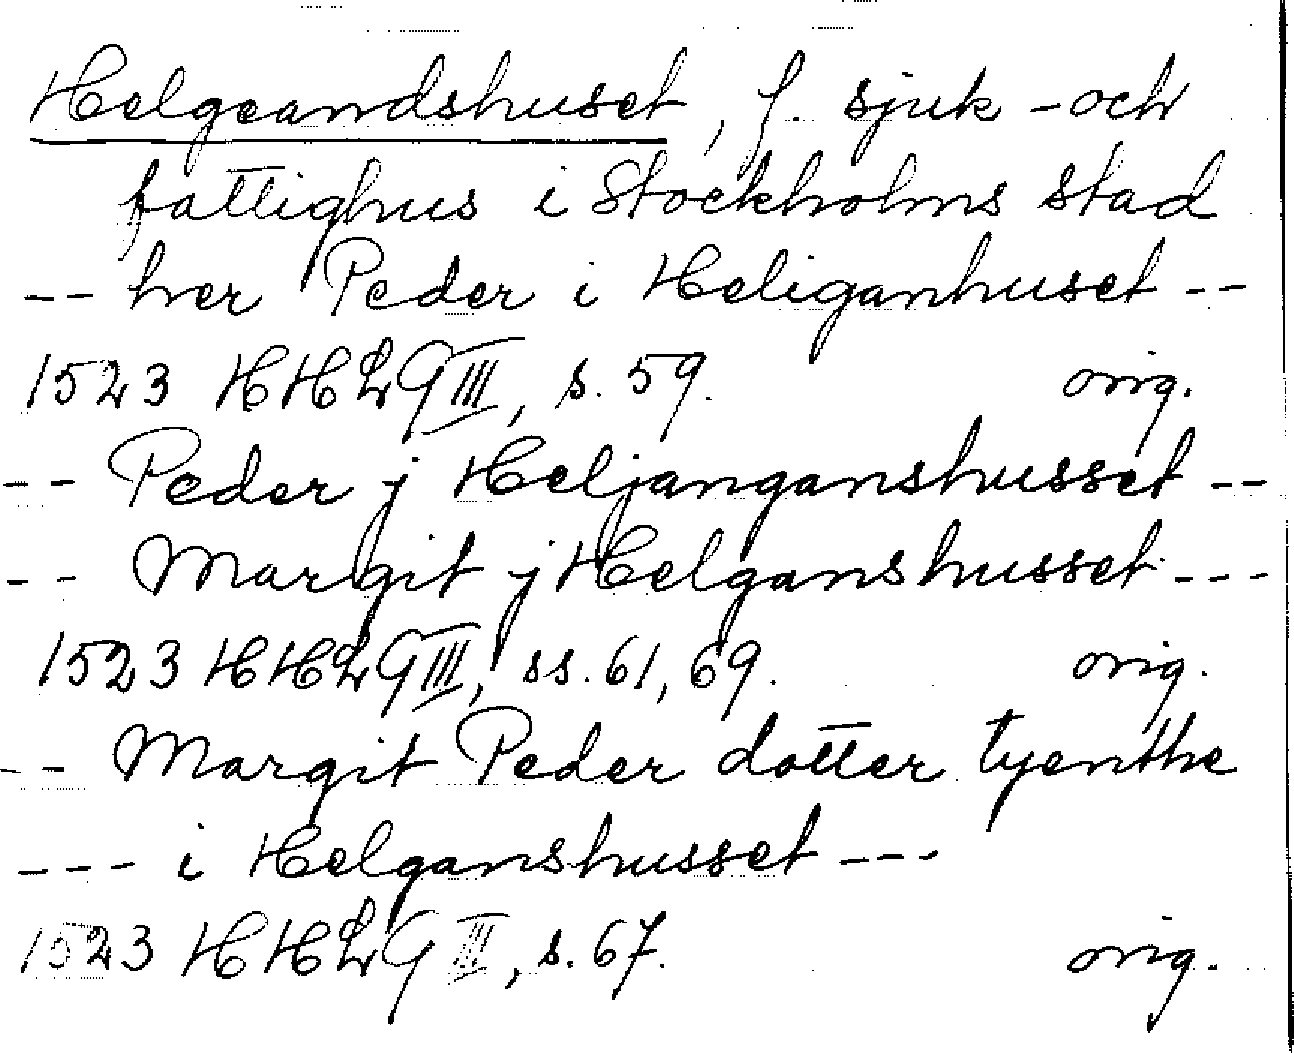 Helgeandshuset, f. sjuk- och
fattighus i Stockholms stad
-- her Peder i Heliganhuset --
1523 HHLG III, s. 59. orig.
-- Peder j Heljanganshusset --
-- Margit j Helganshusset ---
1523 HHLG III, ss. 61, 69. orig.
-- Margit Peder dotter tyenthe
--- i Helganshusset ---
1523 HHLG III, s. 67. orig.